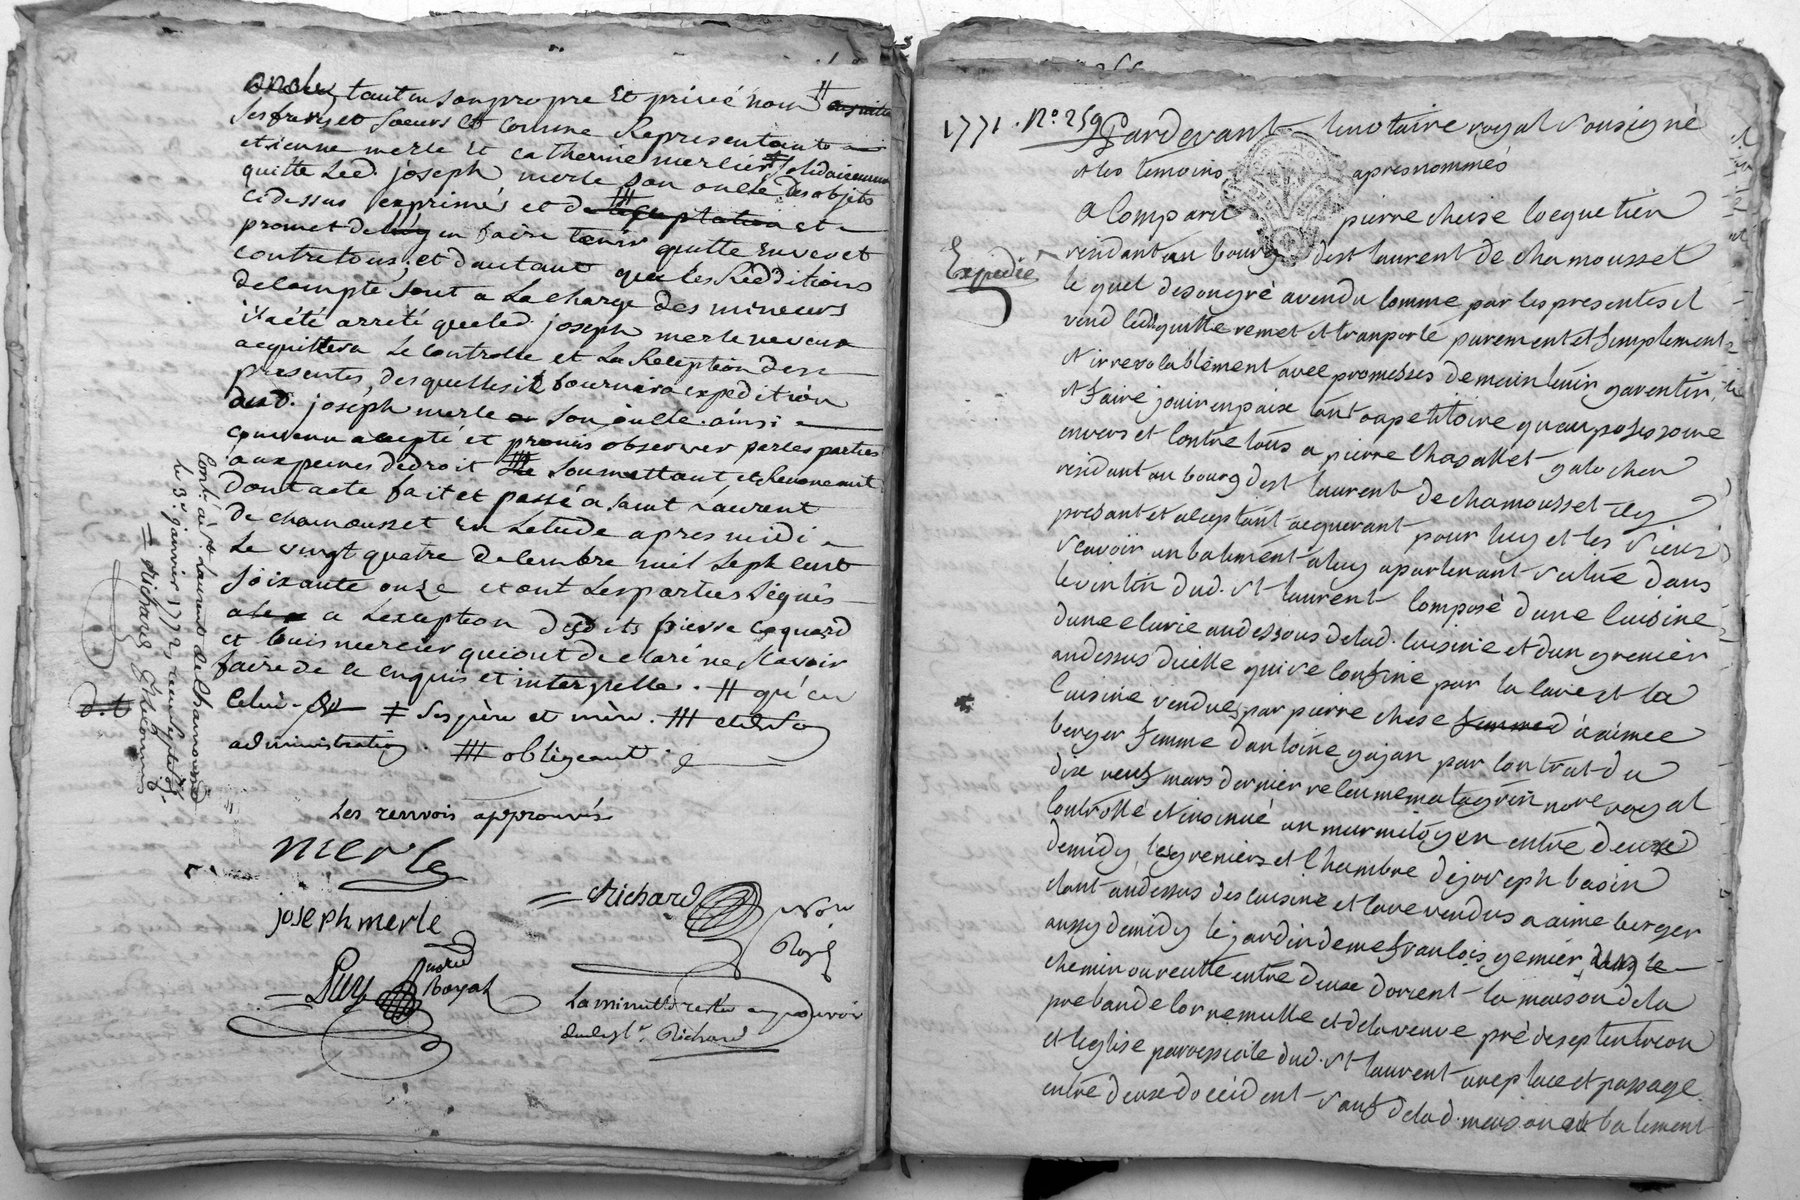 tant en son propre et privé nom #
ses freres et soeurs et comme Representants
etienne merle et catherine mercier ‡ solidairement
quitte led. joseph merle son oncle des objets
cidessus exprimés et de et
promet de en faire tenir quitte envers et
contre tous; et dautant que les Redditions
de compte sont a La charge des mineurs
il a été arreté que led. joseph merle neveux
acquittera Le controlle et La Reception des
presentes, desquelles il fournira expedition
aud. joseph merle son oncle. ainsi
convenu accepté et promis observer par les parties
aux peines de droit se soumettant et Renonceant
dont acte fait et passé a saint Laurent
de chamousset en Letude apres midi
Le vingt quatre decembre mil sept cent
soixante onze et ont Les parties signés
a Lexception desdits pierre coquard
et Louis mercier qui ont declaré ne scavoir
faire de ce enquis et interpellé. # qu'en
celui ‡ ses père et mère. #
administration. # obligeant
Les renvois approuvés
merle
joseph merle
Richard
Roy.l
Puy
Royal
La minutte restée au pouvoir
dud. s.r Richard
Cont. a S.t Laurent de Chamousset
le 3.e janvier 1772
Richard
1771. N.o 259
Pardevant le notaire royal sousigné
et les temoins apres nommés
a Comparu pierre cheise locquetier
residant au bourg de st laurent de chamousset
Expedié
le quel de son gré a vendu comme par les presentes il
vend cede quitte remet et tranporte purement et simplement
et irrevocablement avec promesses de maintenir, garentir,
et faire jouir en paix tant au petitoire qu'au possessoire
envers et contre tous a pierre Chasallet galocher
residant au bourg de st laurent de chamousset icy
present et aceptant acquerant pour luy et les siens
scavoir un batiment a luy apartenant situé dans
le vintin dud. st laurent composé dune cuisine
dune ecurie au dessous de lad. cuisine et dun grenier
au dessus dicelle qui se confine par la cave et la
cuisine vendues par pierre cheise à aimee
berger femme dantoine gajan par contrat du
dix neuf mars dernier receu me matagrin no.re royal
controllé et insinué un mur mitoyen entre deux
de midy, les greniers et Chambre de joseph basin
etant au dessus des cuisine et cave vendus a aimé berger
aussy de midy le jardin de me francois genier, le
chemin ou ruette entre deux dorient la maison de la
prebande cornemulle et de la veuve pré de septentrion
et leglise paroissiale dud. st laurent une place et passage
entre deux doccident sauf de lad. maison et batiment